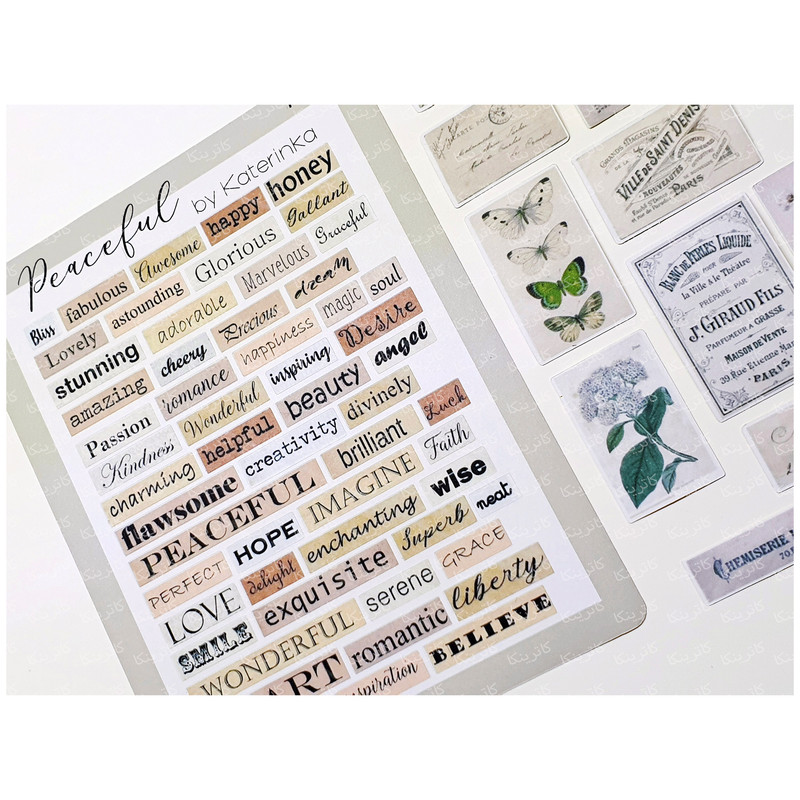 Peaceful by Katerinka
Bliss fabulous Awesome happy honey
Lovely astounding Glorious Gallant
stunning adorable Marvelous Graceful
amazing cheery Precious dream
Passion romance happiness magic soul
Kindness Wonderful inspiring Desire
charming helpful beauty angel
flawsome creativity divinely
PEACEFUL brilliant Luck
PERFECT HOPE IMAGINE Faith
LOVE delight enchanting wise
SMILE exquisite Superb neat
WONDERFUL serene GRACE
ART romantic liberty
BELIEVE
CARTE POSTALE
GRANDS MAGASINS
DE LA
VILLE DE SAINT DENIS
NOUVEAUTES
PARIS
BLANC DE PERLES LIQUIDE
POUR
la Ville & le Théatre
PRÉPARÉ PAR
Jh GIRAUD FILS
PARFUMEUR A GRASSE
MAISON DE VENTE
39, Rue Etienne Mar
PARIS
CHEMISERIE
كاترينكا